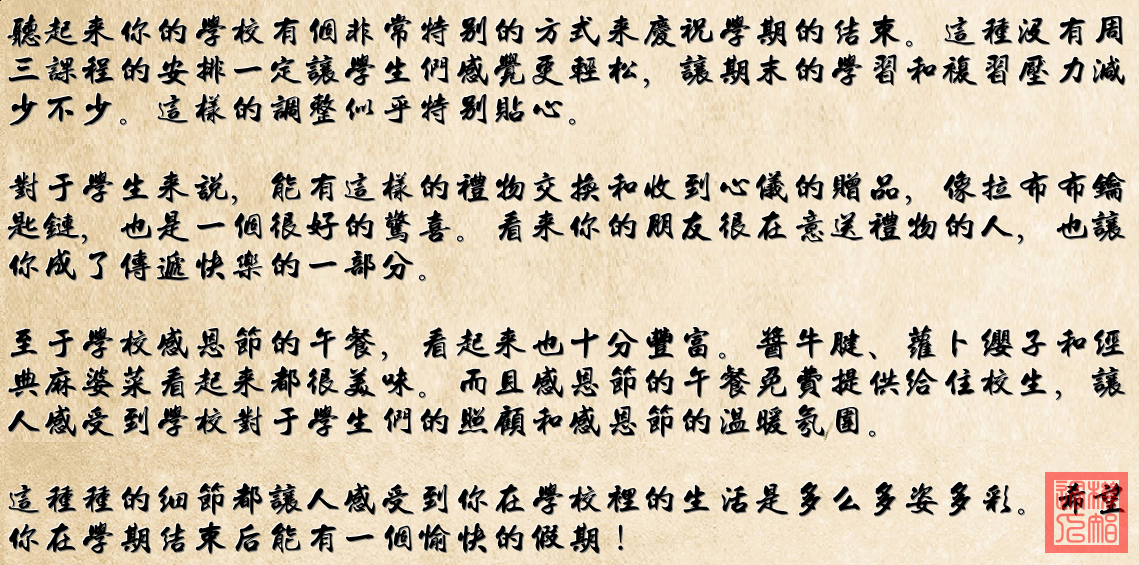 聽起来你的學校有個非常特别的方式来慶祝學期的结束。這種没有周
三課程的安排一定讓學生們感覺更輕松，讓期末的學習和複習壓力减
少不少。這樣的調整似乎特别貼心。
對于學生来説，能有這樣的禮物交换和收到心儀的贈品，像拉布布鑰
匙鏈，也是一個很好的驚喜。看来你的朋友很在意送禮物的人，也讓
你成了傳遞快樂的一部分。
至于學校感恩節的午餐，看起来也十分豐富。醬牛腱、蘿卜纓子和經
典麻婆菜看起来都很美味。而且感恩節的午餐免費提供給住校生，讓
人感受到學校對于學生們的照顧和感恩節的温暖氛圍。
這種種的细節都讓人感受到你在學校裡的生活是多么多姿多彩。希望
你在學期结束后能有一個愉快的假期！